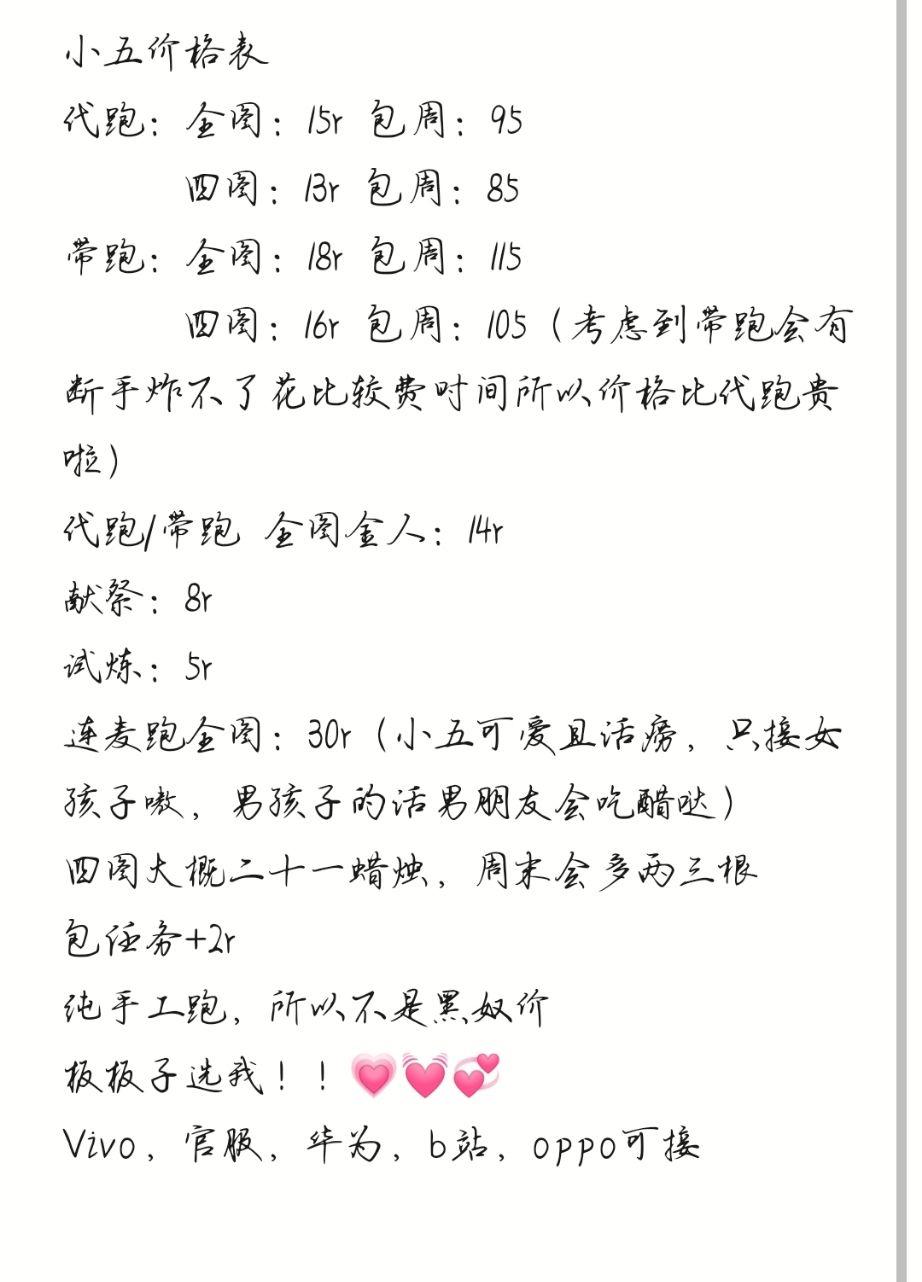 小五价格表
代跑：全图：15r 包周：95
四图：13r 包周：85
带跑：全图：18r 包周：115
四图：16r 包周：105（考虑到带跑会有
断手炸不了花比较费时间所以价格比代跑贵
啦）
代跑/带跑 全图金人：14r
献祭：8r
试炼：5r
连麦跑全图：30r（小五可爱且活痨，只接女
孩子嗷，男孩子的话男朋友会吃醋哒）
四图大概二十一蜡烛，周末会多两三根
包任务+2r
纯手工跑，所以不是黑奴价
板板子选我！！💗💓💞
Vivo，官服，华为，b站，oppo可接